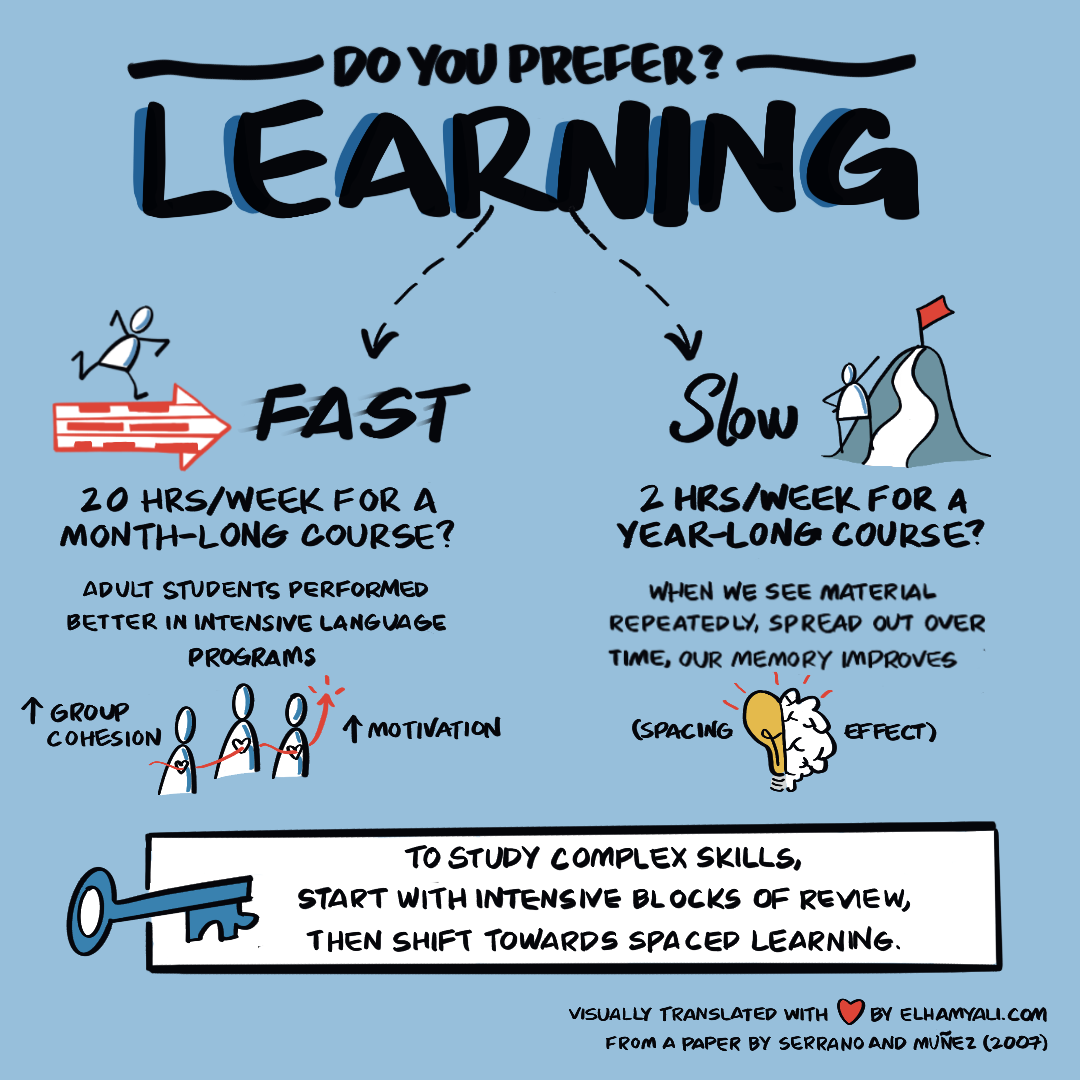 DO YOU PREFER?
LEARNING
FAST
20 HRS/WEEK FOR A
MONTH-LONG COURSE?
ADULT STUDENTS PERFORMED
BETTER IN INTENSIVE LANGUAGE
PROGRAMS
↑ GROUP
COHESION
↑ MOTIVATION
Slow
2 HRS/WEEK FOR A
YEAR-LONG COURSE?
WHEN WE SEE MATERIAL
REPEATEDLY, SPREAD OUT OVER
TIME, OUR MEMORY IMPROVES
(SPACING EFFECT)
TO STUDY COMPLEX SKILLS,
START WITH INTENSIVE BLOCKS OF REVIEW,
THEN SHIFT TOWARDS SPACED LEARNING.
VISUALLY TRANSLATED WITH ❤ BY ELHAMYALI.COM
FROM A PAPER BY SERRANO AND MUÑEZ (2007)